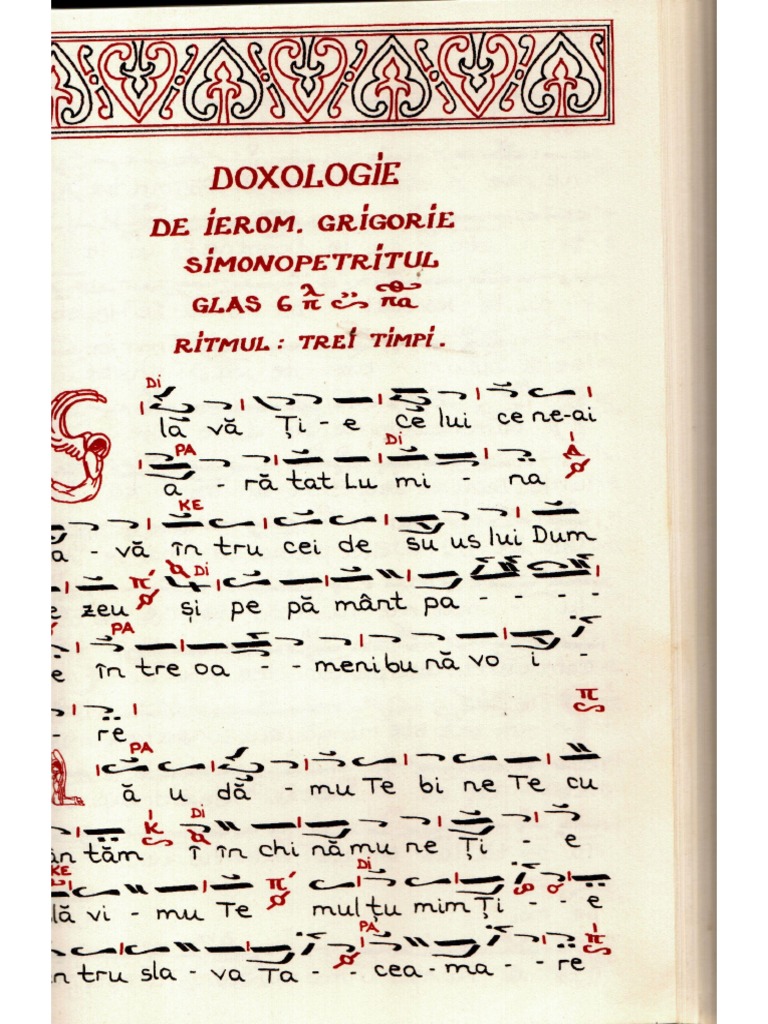 DOXOLOGIE
DE IEROM. GRIGORIE
SIMONOPETRITUL
GLAS 6 λ π πα
RITMUL: TREI TIMPI.
DI
S la vă Ți - e ce lui ce ne-ai
PA DI
a - ră tat Lu mi - na
KE
a - vă în tru cei de su us lui Dum
DI
e zeu și pe pă mânt pa - - - -
PA
e în tre oa - - meni bu nă vo i -
- re
PA
ă u dă - mu Te bi ne Te cu
DI
ân tăm î în chi nă mu ne Ți - e
KE DI
lă vi - mu Te mul țu mim Ți - - e
PA
în tru sla - va Ta - - cea - ma - - re